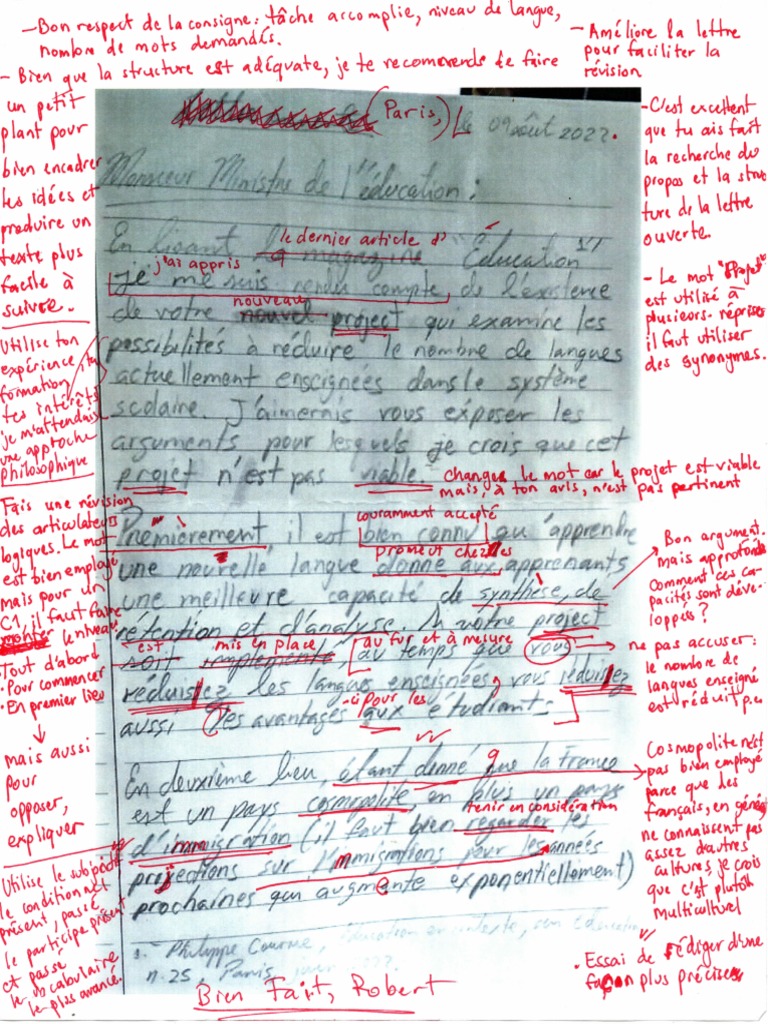 - Bon respect de la consigne: tâche accomplie, niveau de langue,
nombre de mots demandés.
- Bien que la structure est adéquate, je te recomende de faire
un petit
plant pour
bien encadrer
tes idées et
produire un
texte plus
facile à
suivre.
- Améliore la lettre
pour faciliter la
révision
- C'est excellent
que tu ais fait
la recherche du
propos et la struc
ture de la lettre
ouverte.
- Le mot "Projet"
est utilisé à
plusieurs reprises
il faut utiliser
des synonymes.
(Paris,) Le 09 août 2022.
Monsieur Ministre de l'éducation:
le dernier article d'
En lisant magazine "Éducation"
j'ai appris
je me suis rendu compte de l'existence
nouveau
de votre nouvel project qui examine les
possibilités à réduire le nombre de langues
actuellement enseignées dans le système
scolaire. J'aimerais vous exposer les
arguments pour lesquels je crois que cet
projet n'est pas viable.
changes le mot car le projet est viable
mais, à ton avis, n'est pas pertinent
Utilise ton
expérience, ta
formation
tes intérêts
je m'attendais
une approche
philosophique
couramment accepté
Premièrement il est bien connu qu'apprendre
promeut chez les
une nouvelle langue donne aux apprenants
une meilleure capacité de synthèse, de
rétention et d'analyse. votre project
est mis en place au fur et à mesure
soit implementé, au temps que vous
réduissez les langues enseignées, vous réduisez
pour les
aussi des avantages aux étudiants.
Fais une révision
des articulateurs
logiques. Le mot
est bien employé
mais pour un
C1, il faut faire
monter le niveau
• Tout d'abord
• Pour commencer
• En premier lieu
mais aussi
pour
opposer,
expliquer
Bon argument.
mais approfondis
Comment ces ca-
pacités sont déve-
loppées?
ne pas accuser:
le nombre de
langues enseigné
est réduit p.e.
En deuxième lieu, étant donné que la France
est un pays cosmopolite, en plus un pays
tenir en considération
d'immigration (il faut bien regarder les
projections sur l'immigrations pour les années
prochaines qui augmente exponentiellement)
Cosmopolite n'est
pas bien employé
parce que des
français, en général
ne connaissent pas
assez d'autres
cultures, je crois
que c'est plutôt
Multiculturel
• Essai de rédiger d'une
façon plus précise
Utilise le subjonctif
le conditionnel
présent, passé
le participe présent
et passé
le vocabulaire
le plus avancé.
Philippe
n. 25, Paris,
Bien Fait, Robert